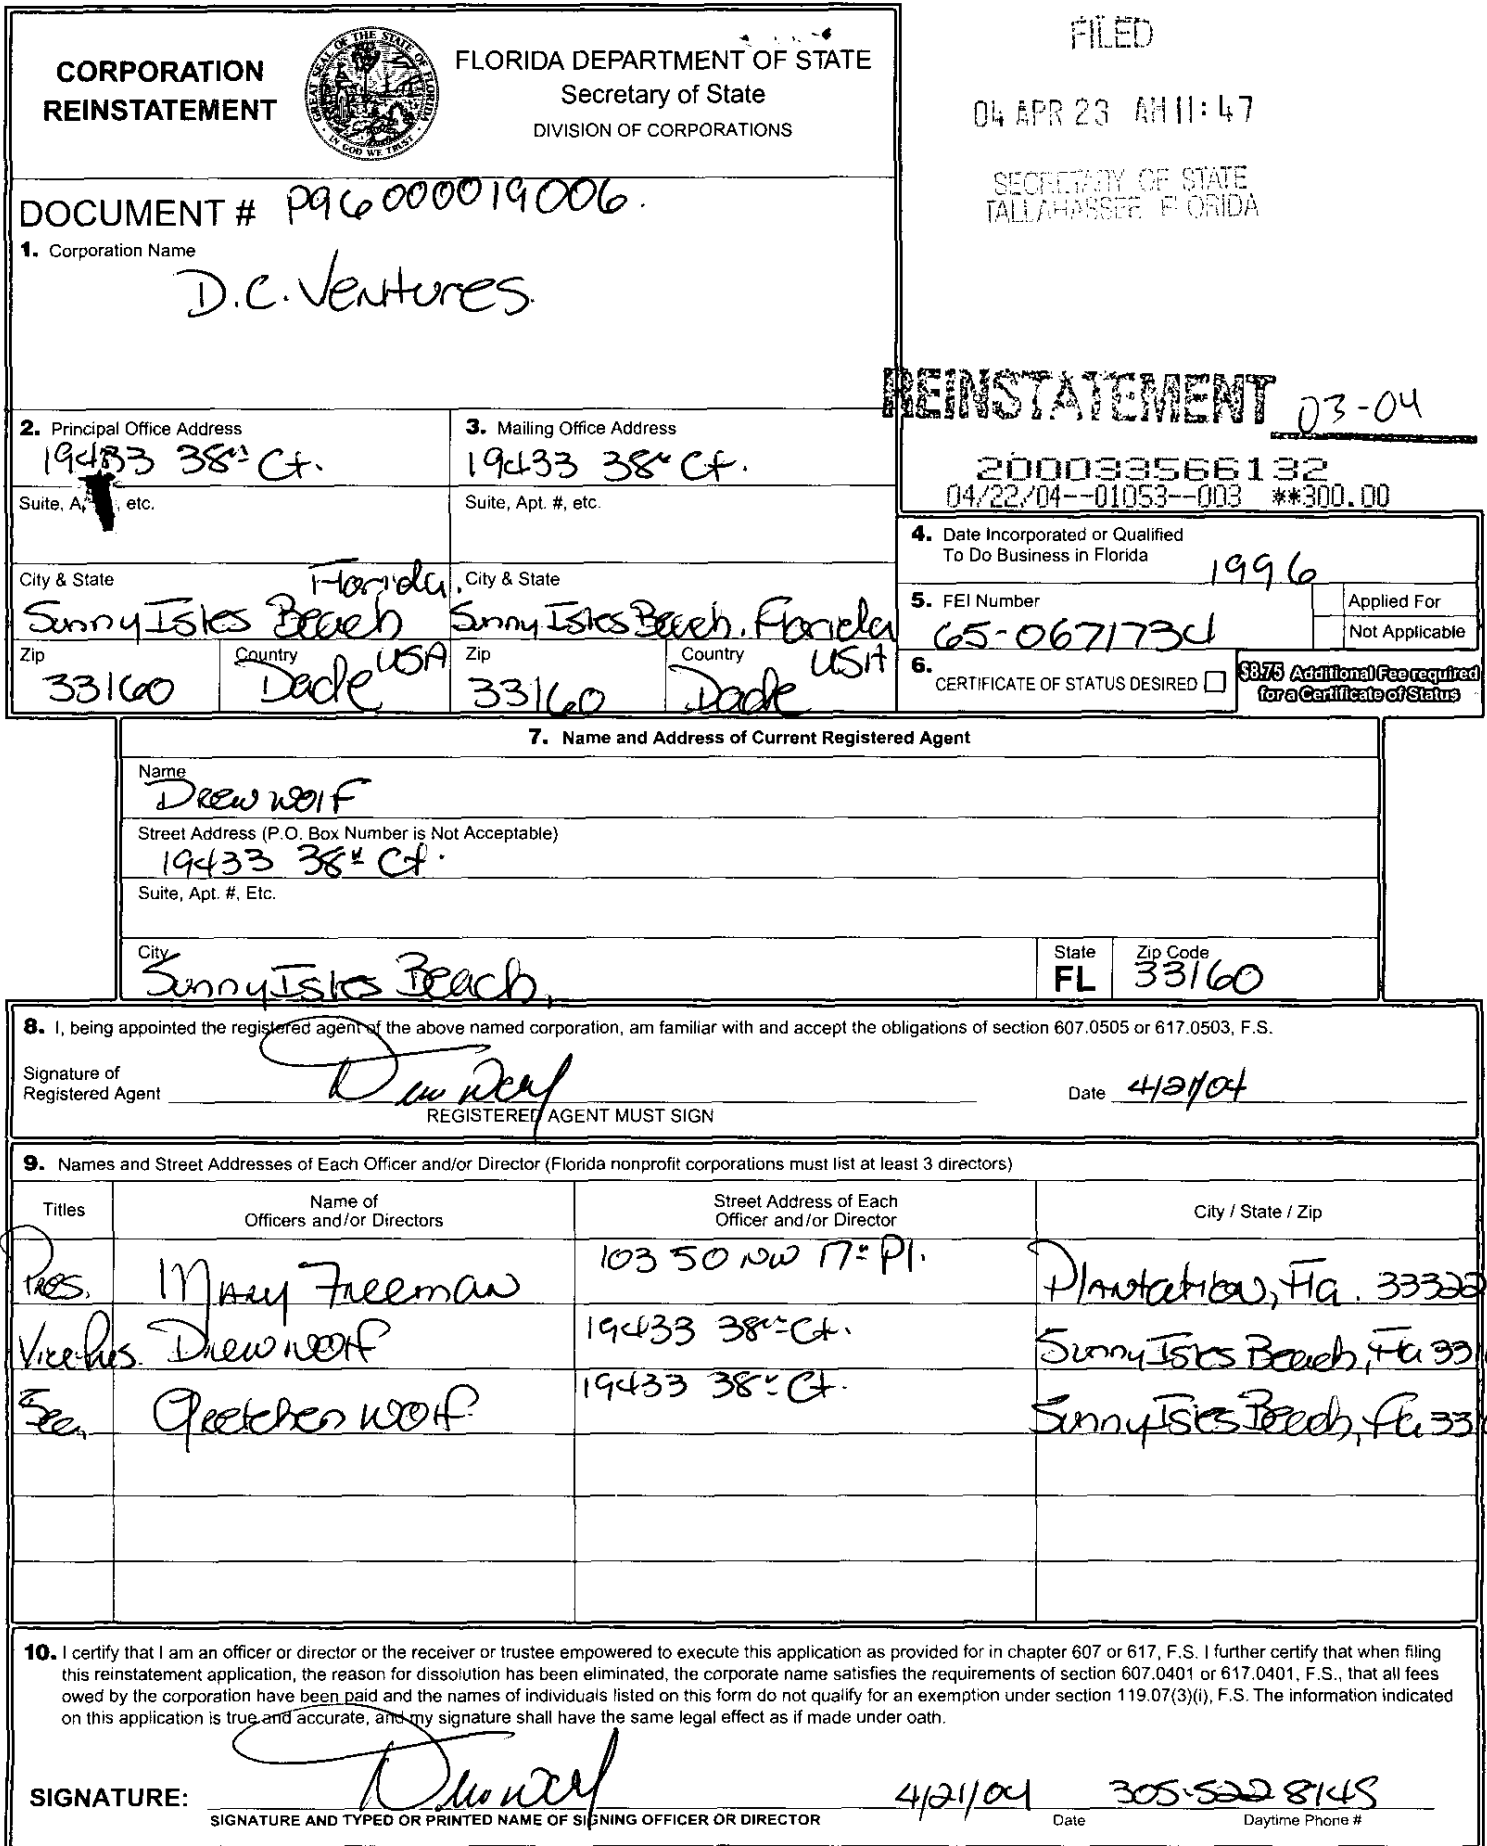 CORPORATION
REINSTATEMENT
GREAT SEAL OF THE STATE OF FLORIDA
IN GOD WE TRUST
FLORIDA DEPARTMENT OF STATE
Secretary of State
DIVISION OF CORPORATIONS
FILED
04 APR 23 AM 11:47
SECRETARY OF STATE
TALLAHASSEE FLORIDA
DOCUMENT # P96000019006.
1. Corporation Name
D.C. Ventures.
REINSTATEMENT 03-04
2. Principal Office Address
19433 38th Ct.
3. Mailing Office Address
19433 38th Ct.
200033566132
04/22/04--01053--003 **300.00
Suite, A , etc.
Suite, Apt. #, etc.
4. Date Incorporated or Qualified
To Do Business in Florida
1996
City & State
Florida.
Sunny Isles Beach
City & State
Sunny Isles Beach, Florida
5. FEI Number
65-0671734
Applied For
Not Applicable
Zip
33160
Country
Dade USA
Zip
33160
Country
Dade USA
6. CERTIFICATE OF STATUS DESIRED
$8.75 Additional Fee required
for a Certificate of Status
7. Name and Address of Current Registered Agent
Name
Drew Wolf
Street Address (P.O. Box Number is Not Acceptable)
19433 38th Ct.
Suite, Apt. #, Etc.
City
Sunny Isles Beach,
State
FL
Zip Code
33160
8. I, being appointed the registered agent of the above named corporation, am familiar with and accept the obligations of section 607.0505 or 617.0503, F.S.
Signature of
Registered Agent Drew Wolf
Date 4/21/04
REGISTERED AGENT MUST SIGN
9. Names and Street Addresses of Each Officer and/or Director (Florida nonprofit corporations must list at least 3 directors)
Titles
Name of
Officers and/or Directors
Street Address of Each
Officer and/or Director
City / State / Zip
Pres. Mary Freeman 10350 NW 17th Pl. Plantation, Fla. 33322
Vice Pres. Drew Wolf 19433 38th Ct. Sunny Isles Beach, Fla 331
Sec. Gretchen Wolf 19433 38th Ct. Sunny Isles Beach, Fla 331
10. I certify that I am an officer or director or the receiver or trustee empowered to execute this application as provided for in chapter 607 or 617, F.S. I further certify that when filing
this reinstatement application, the reason for dissolution has been eliminated, the corporate name satisfies the requirements of section 607.0401 or 617.0401, F.S., that all fees
owed by the corporation have been paid and the names of individuals listed on this form do not qualify for an exemption under section 119.07(3)(i), F.S. The information indicated
on this application is true and accurate, and my signature shall have the same legal effect as if made under oath.
SIGNATURE: Drew Wolf 4/21/04 305-522 8145
SIGNATURE AND TYPED OR PRINTED NAME OF SIGNING OFFICER OR DIRECTOR
Date
Daytime Phone #